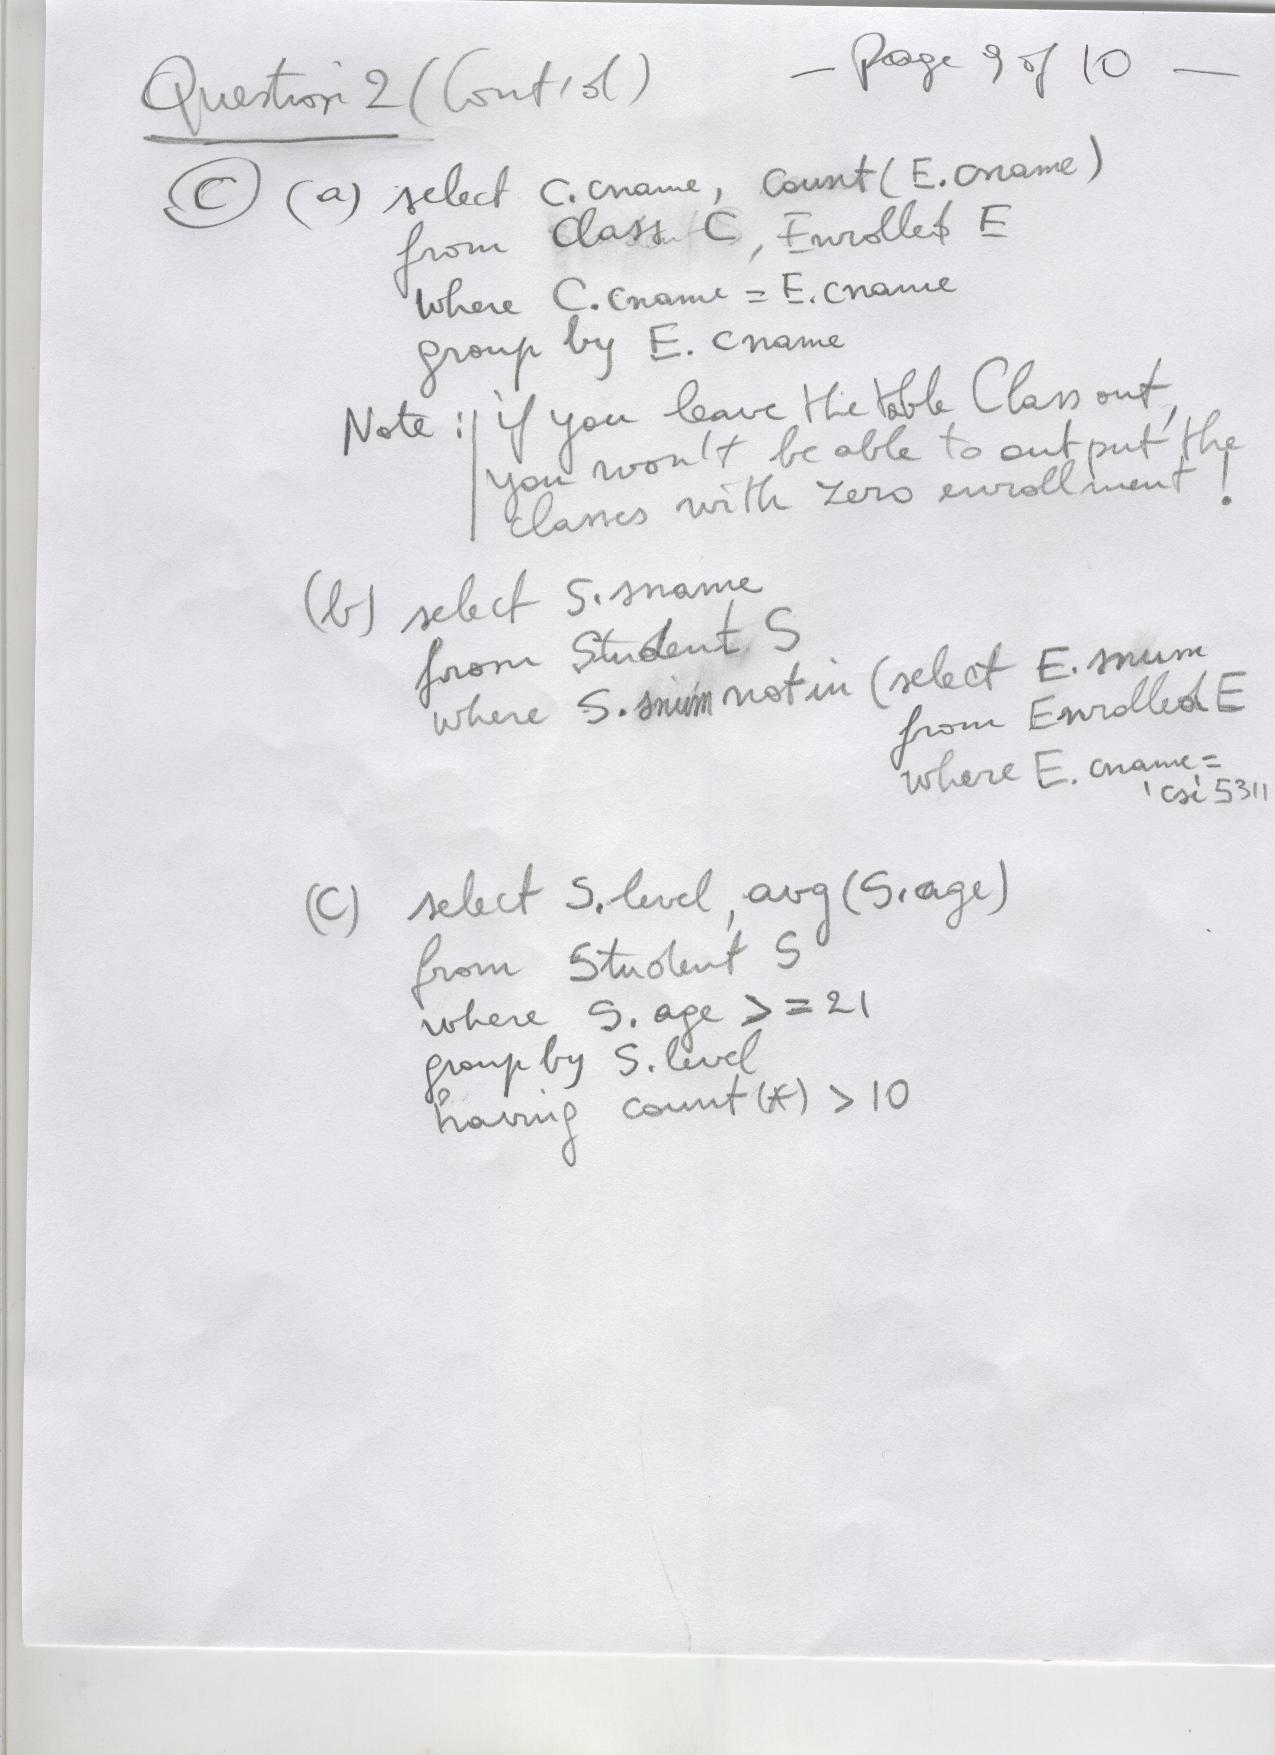 Question 2 (Cont'd)
— Page 9 of 10 —
(C) (a) select C.cname, count(E.cname)
from Class C, Enrolled E
where C.cname = E.cname
group by E.cname
Note: if you leave the table Class out,
you won't be able to output the
classes with zero enrollment!
(b) select S.sname
from Student S
where S.snum not in (select E.snum
from Enrolled E
where E.cname =
'csi5311
(C) select S.level, avg(S.age)
from Student S
where S.age >= 21
group by S.level
having count(*) > 10